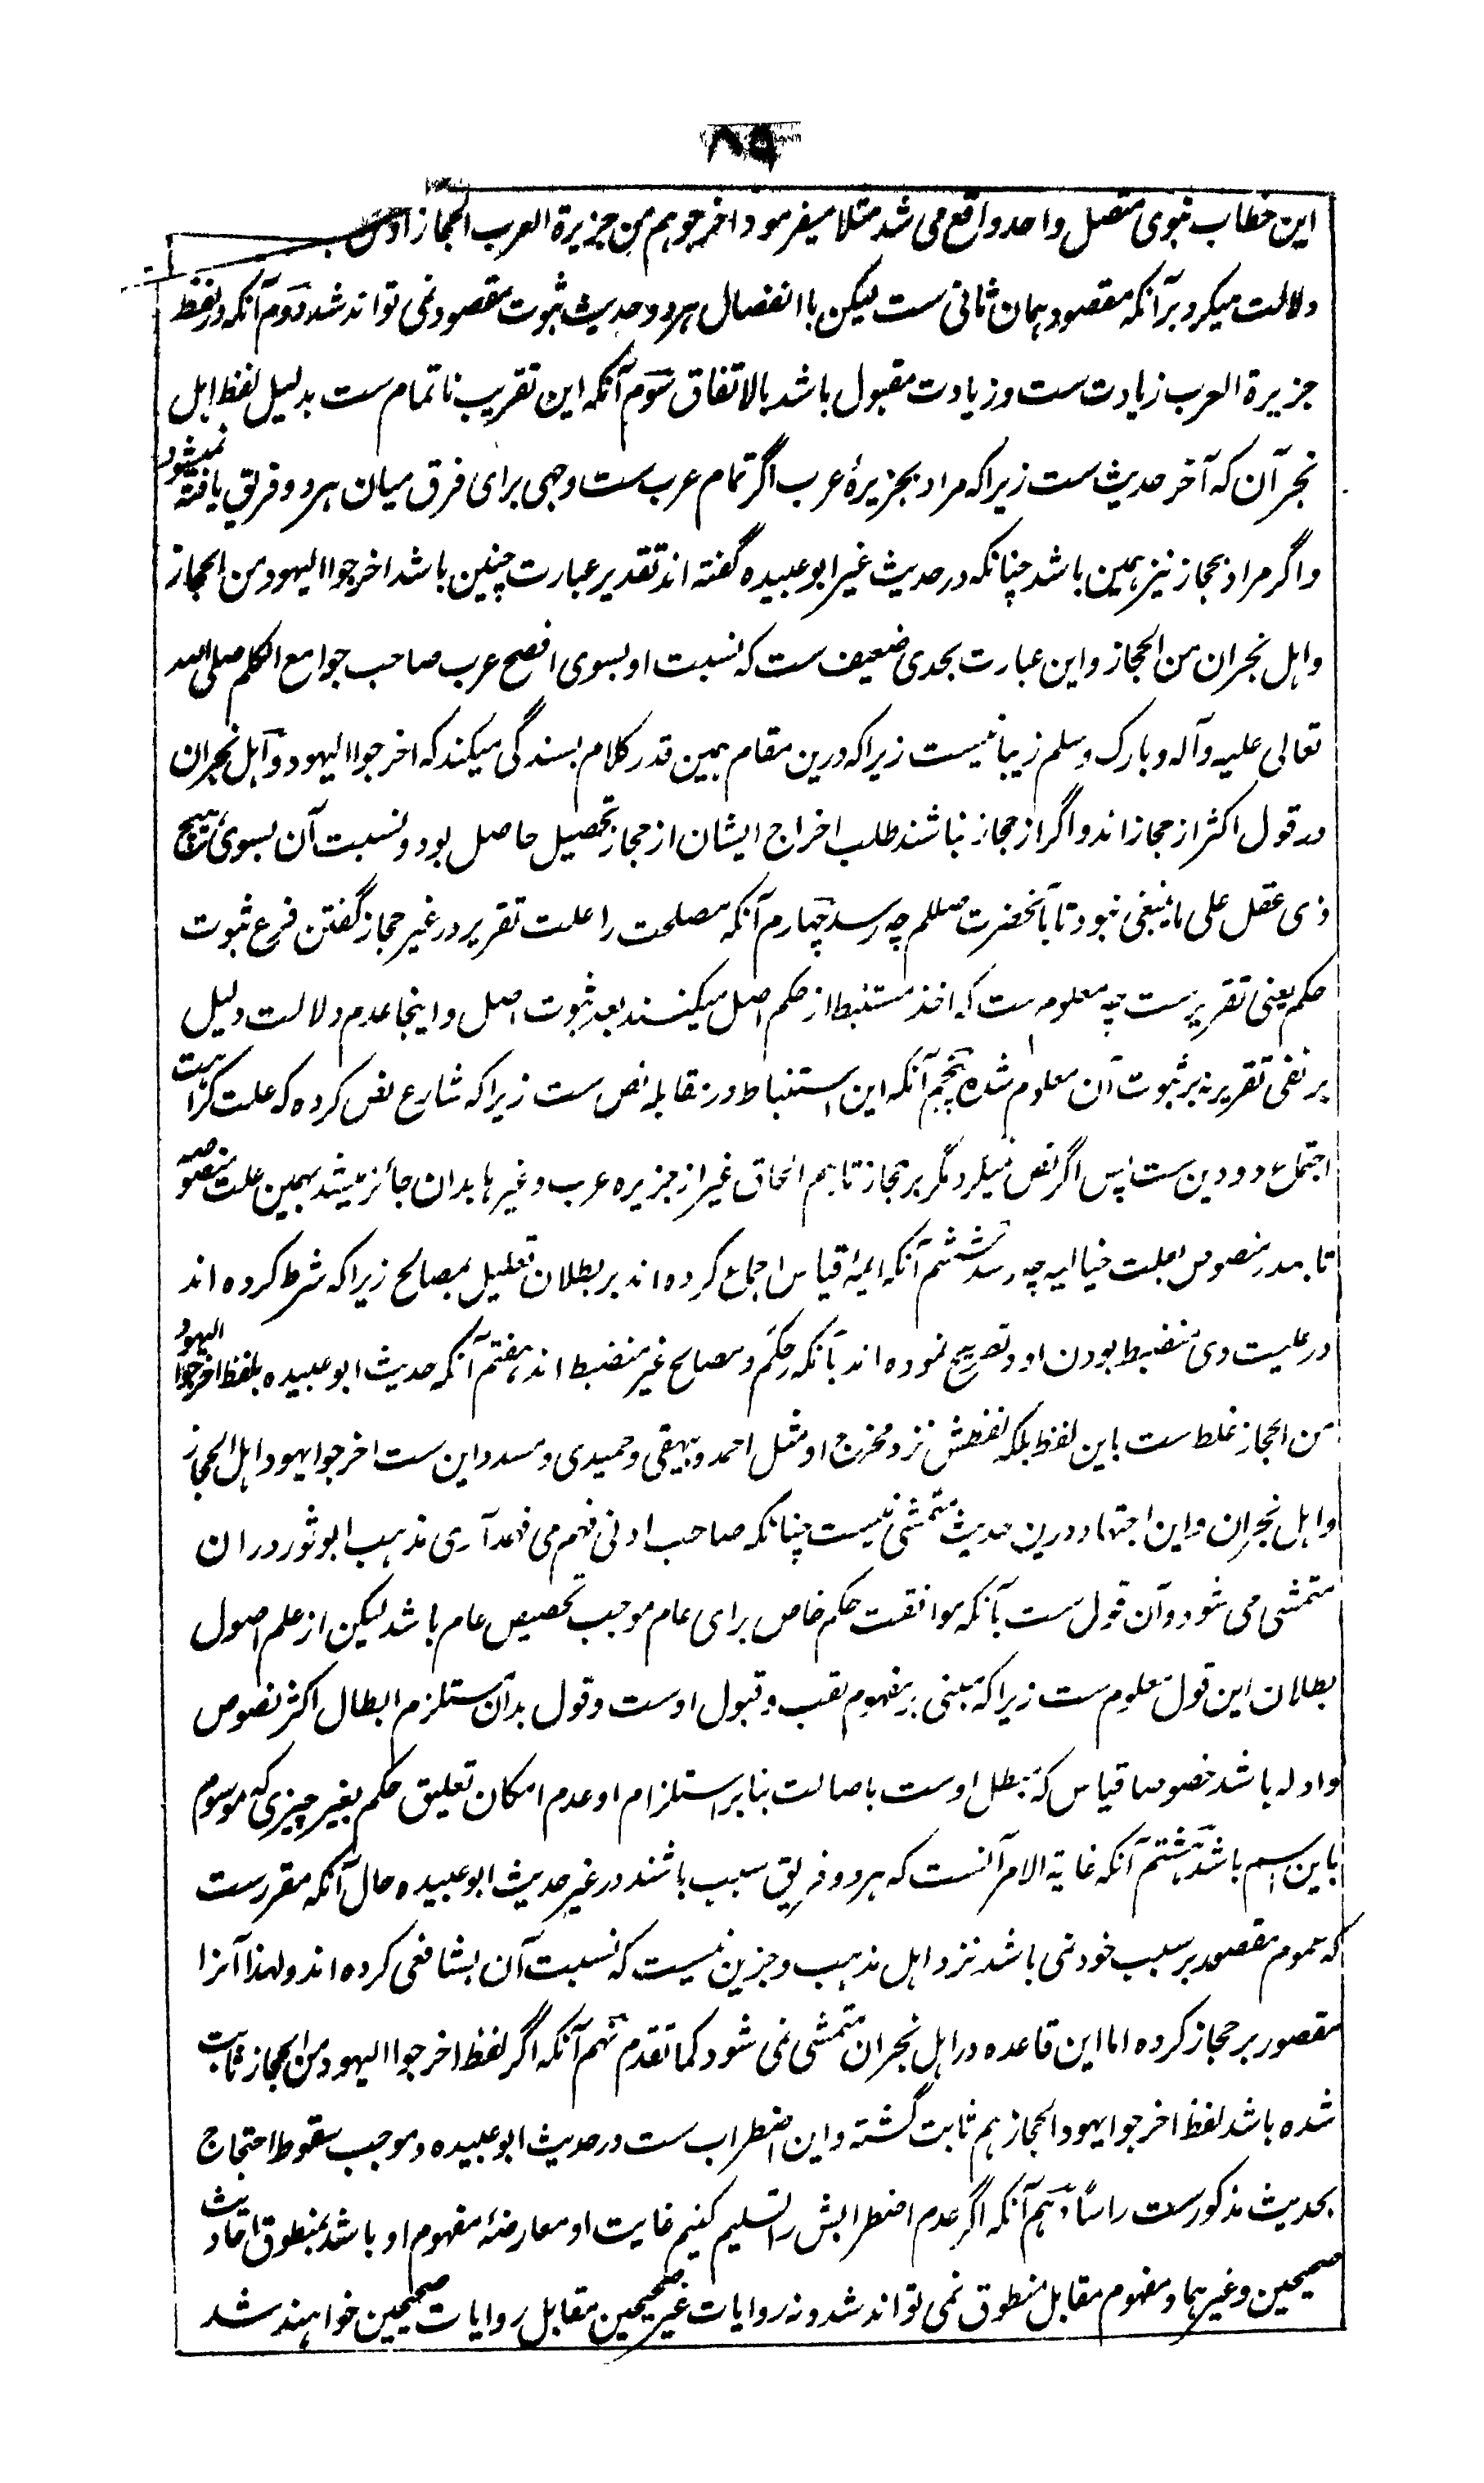 ۸۹
این خطاب نبوی متصل واحد واقع می شد مثلا میفرمود اخرجوهم من جزیرة العرب الحجاز
دلالت میکرد برآنکه مقصود همان ثانی ست لیکن با انفصال هر دو حدیث ثبوت مقصود نمی تواند شد دوم آنکه در لفظ
جزیرة العرب زیادت ست و زیادت مقبول باشد بالاتفاق سوم آنکه این تقریب ناتمام ست بدلیل لفظ اهل
نجران که آخر حدیث ست زیراکه مراد بجزیرۀ عرب اگر تمام عرب ست وجهی برای فرق میان هر دو فریق یافته نمیشود
و اگر مراد بحجاز نیز همین باشد چنانکه در حدیث غیر ابو عبیده گفته اند تقدیر عبارت چنین باشد اخرجوا الیهود من الحجاز
و اهل نجران من الحجاز و این عبارت بحدی ضعیف ست که نسبت او بسوی افصح عرب صاحب جوامع الکلم صلی الله
تعالی علیه وآله وبارک وسلم زیبا نیست زیراکه درین مقام همین قدر کلام بسندگی میکند که اخرجوا الیهود و اهل نجران
در قول اکثر از حجاز اند و اگر از حجاز نباشند طلب اخراج ایشان از حجاز تحصیل حاصل بود و نسبت آن بسوی هیچ
ذی عقل علی ما ینبغی نبود تا بآنحضرت صللم چه رسد چهارم آنکه مصلحت را علت تقریر در غیر حجاز گفتن فرع ثبوت
حکم یعنی تقریر ست چه معلوم ست که اخذ مستنبط از حکم اصل میکنند بعد ثبوت اصل و اینجا عدم دلالت دلیل
بر نفی تقریر نه بر ثبوت آن معلوم شده پنجم آنکه این استنباط در مقابله نص ست زیراکه شارع نص کرده که علت کراهت
اجتماع دو دین ست پس اگر نص نمیکرد مگر بر حجاز تاهم الحاق غیر از جزیره عرب و غیرها بدان جائز میشد بهمین علت منصوصه
تا بعدر منصوص بعلت خیالیه چه رسد ششم آنکه ائمۀ قیاس اجماع کرده اند بر بطلان تعلیل بمصالح زیراکه شرط کرده اند
در علیت وی منضبط بودن او و تصریح نموده اند بآنکه حکم و مصالح غیر منضبط اند هفتم آنکه حدیث ابو عبیده بلفظ اخرجوا الیهود
من الحجاز غلط ست باین لفظ بلکه لفظش نزد مخرج او مثل احمد و بیهقی و حمیدی و مسدد این ست اخرجوا یهود اهل الحجاز
و اهل نجران و این اجتهاد درین حدیث متمشی نیست چنانکه صاحب ادنی فهم می فهمد آری مذهب ابو ثور در ان
متمشی می شود و آن قول ست بآنکه موافقت حکم خاص برای عام موجب تخصیص عام باشد لیکن از علم اصول
بطلان این قول معلوم ست زیراکه مبنی بر مفهوم لقب و قبول اوست و قول بدان مستلزم ابطال اکثر نصوص
و ادله باشد خصوصا قیاس که مبطل اوست باصالت بنا بر استلزام او عدم امکان تعلیق حکم بغیر چیزی که موسوم
باین اسم باشد هشتم آنکه غایة الامر آنست که هر دو فریق سبب باشند در غیر حدیث ابو عبیده حال آنکه مقررست
که عموم مقصور بر سبب خود نمی باشد نزد اهل مذهب و جزین نیست که نسبت آن بشافعی کرده اند و لهذا آنرا
مقصور بر حجاز کرده اما این قاعده در اهل نجران متمشی نمی شود کما تقدم نهم آنکه اگر لفظ اخرجوا الیهود من الحجاز ثابت
شده باشد لفظ اخرجوا یهود الحجاز هم ثابت گشته و این اضطراب ست در حدیث ابو عبیده و موجب سقوط احتجاج
بحدیث مذکورست راساً دهم آنکه اگر عدم اضطرابش را تسلیم کنیم غایت او معارضۀ مفهوم او باشد بمنطوق احادیث
صحیحین و غیرهما و مفهوم مقابل منطوق نمی تواند شد و نه روایات غیر صحیحین مقابل روایات صحیحین خواهند شد